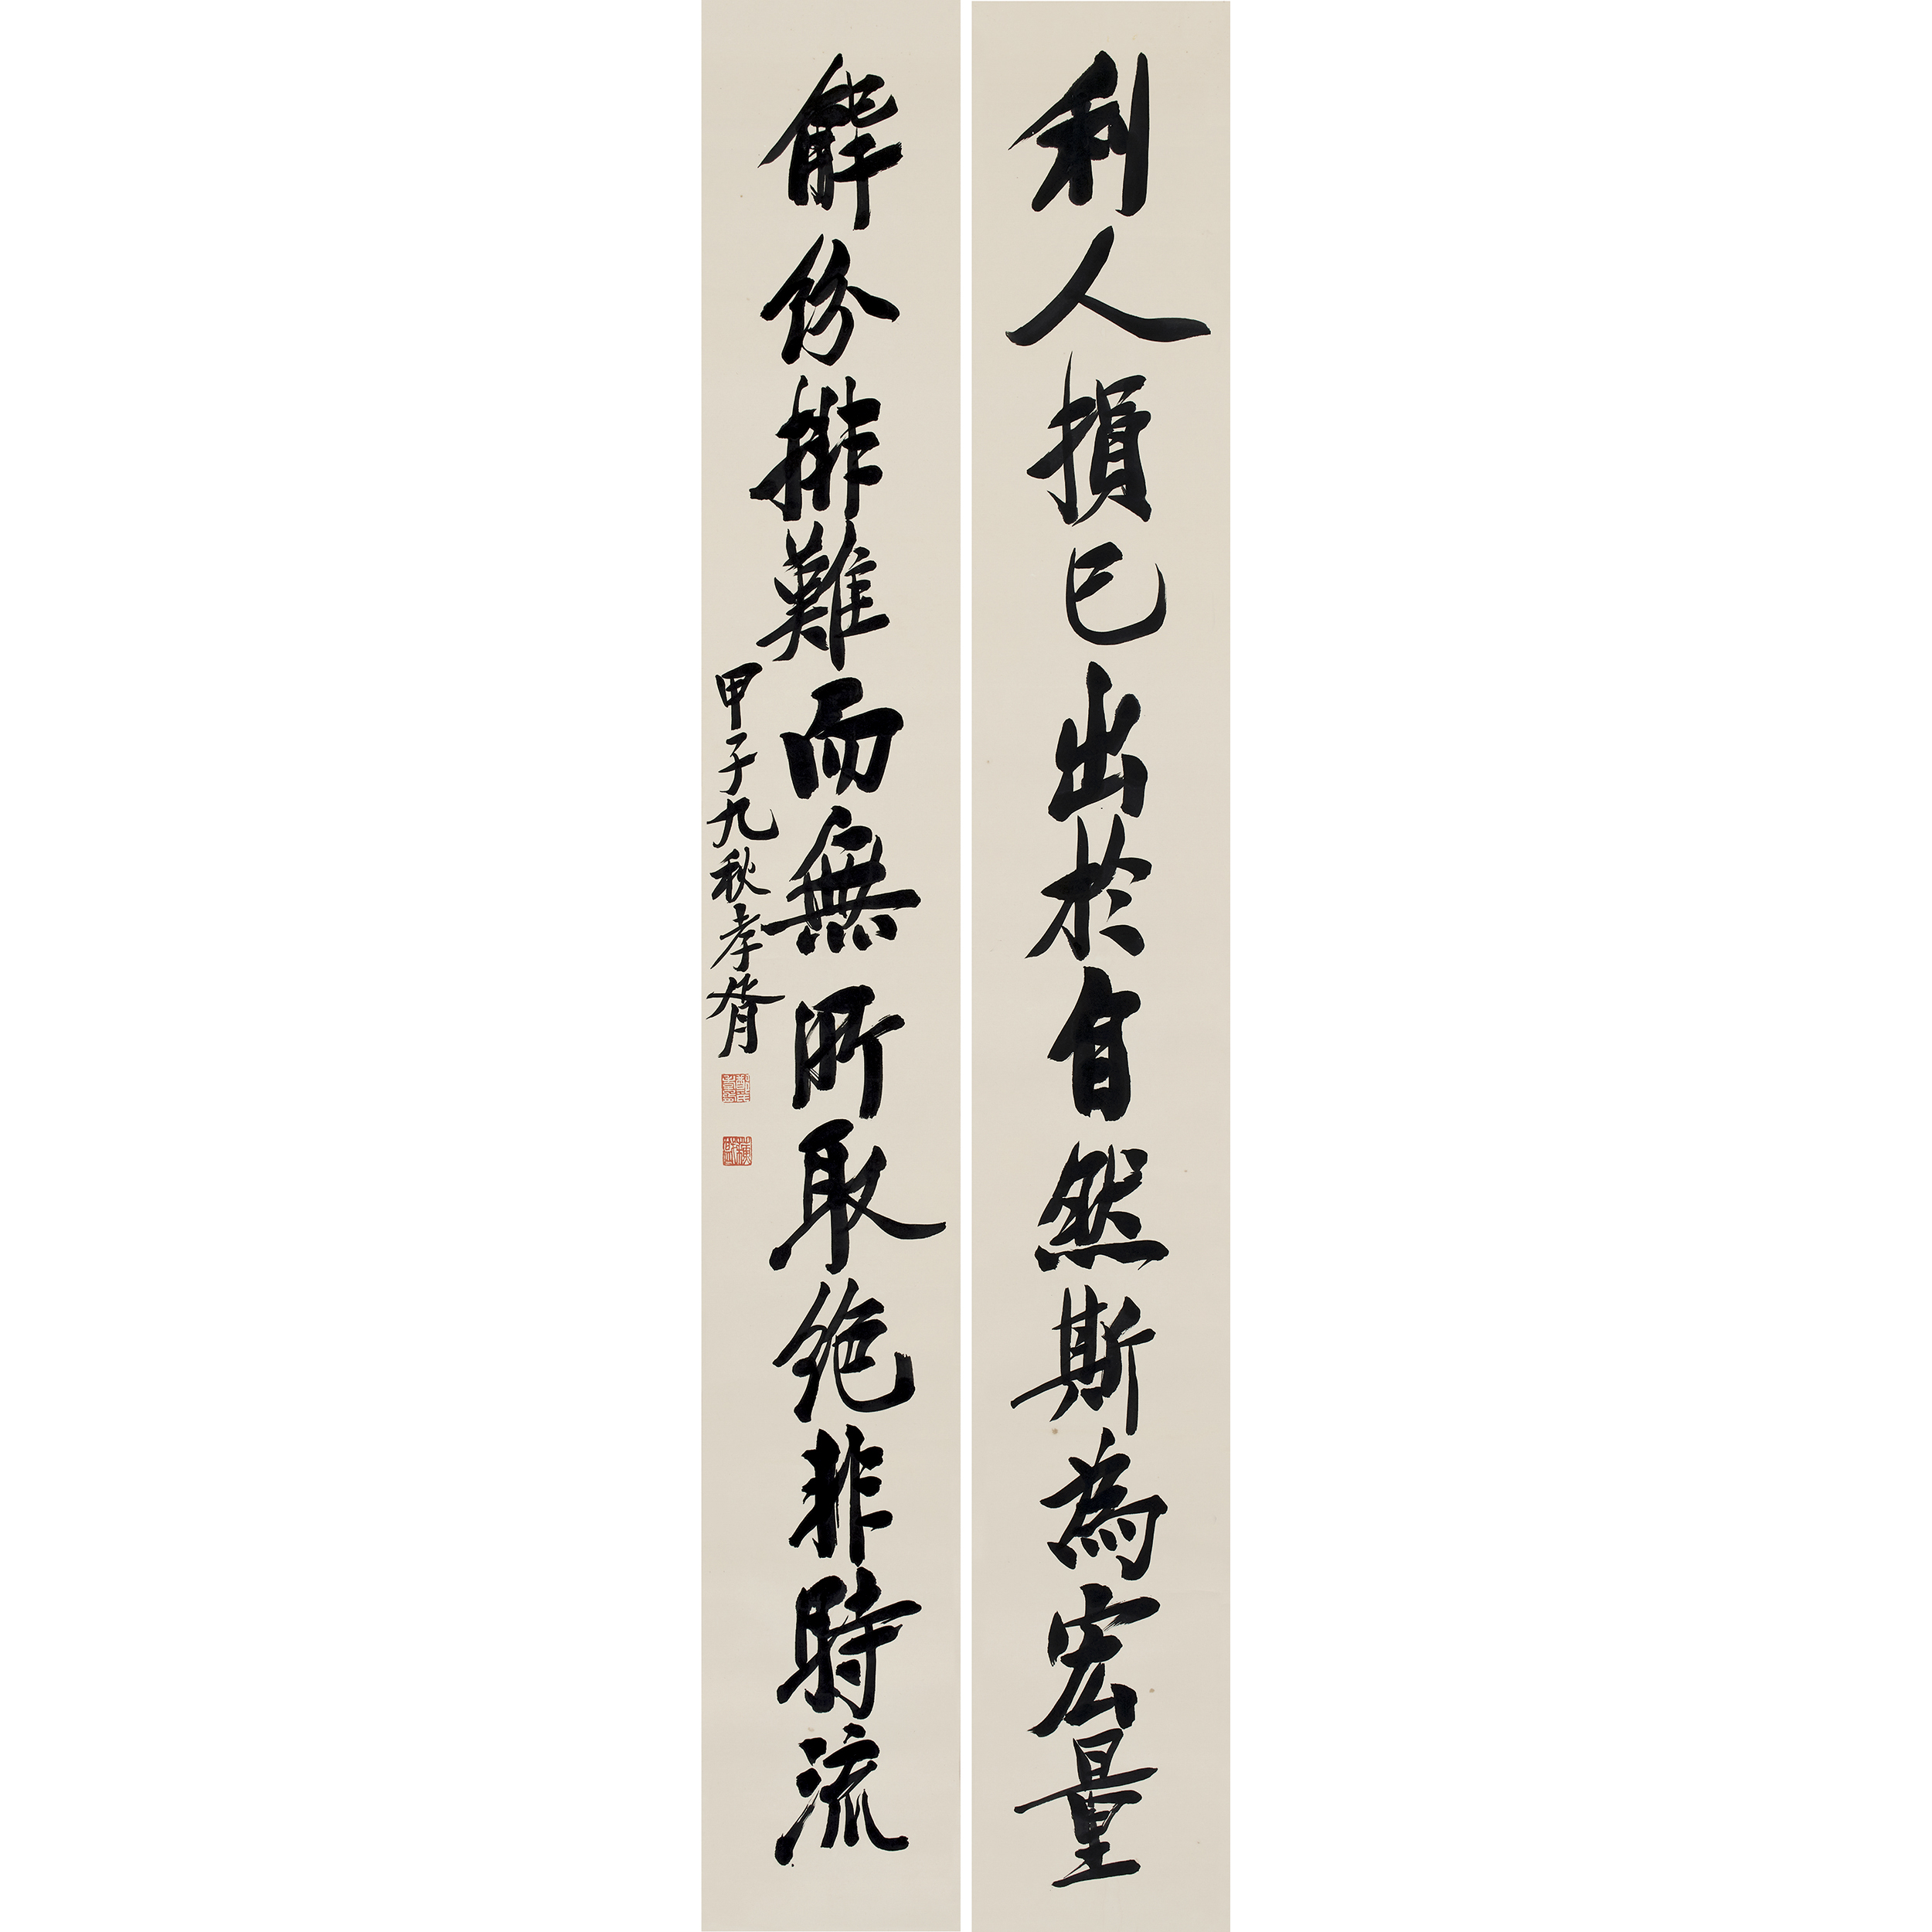 利人損己出於自然斯為宏量
解紛排難而無所取絶非時流
甲子九秋孝胥